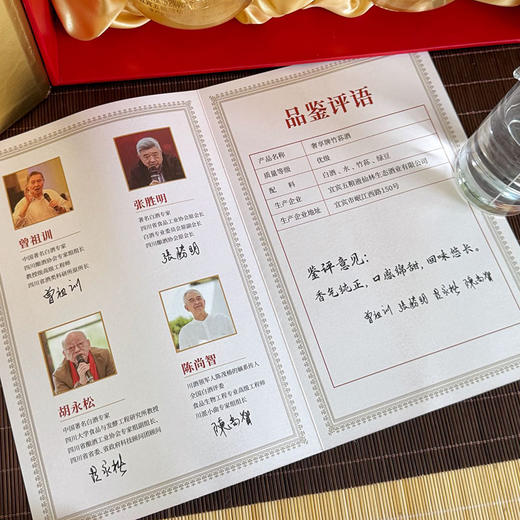 曾祖训
中国著名白酒专家
四川酿酒协会专家组组长
教授级高级工程师
四川省酒类科研所原所长
曾祖训
张胜明
著名白酒专家
四川省食品工业协会原会长
白酒专业委员会原副会长
酿酒协会原会长
张胜明
胡永松
中国著名白酒专家
四川大学食品与发酵工程研究所教授
四川省酿酒工业协会专家组副组长、
四川省省委、省政府科技顾问团顾问
胡永松
陈尚智
川酒领军人陈茂椿的嫡系传人
全国白酒评委
食品生物工程专业高级工程师
川派小曲专家组组长
陳尚智
品鉴评语
产品名称 奢享牌竹荪酒
质量等级 优级
配 料 白酒、水、竹荪、绿豆
生产企业 宜宾五粮液仙林生态酒业有限公司
生产企业地址 宜宾市岷江西路150号
鉴评意见：
香气纯正，口感绵甜，回味悠长。
曾祖训 张胜明 胡永松 陳尚智